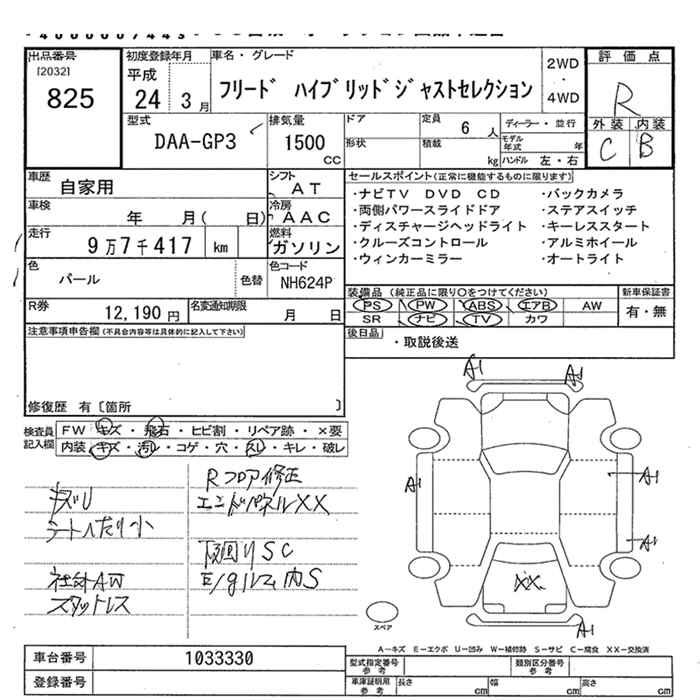 出品番号
[2032]
825
初度登録年月
平成
24 3月
車名・グレード
フリード ハイブリッドジャストセレクション
2WD
・
4WD
評価点
R
外装 内装
C B
型式
DAA-GP3
排気量
1500
CC
ドア
形状
定員
6人
積載
kg
ディーラー・並行
モデル年式 年
ハンドル 左・右
車歴
自家用
シフト
AT
車検
年 月( 日)
冷房
AAC
走行
9万7千417 km
燃料
ガソリン
色
パール
色替
色コード
NH624P
R券
12,190円
名変通知期限
月 日
セールスポイント(正常に機能するものに限ります)
・ナビTV DVD CD ・バックカメラ
・両側パワースライドドア ・ステアスイッチ
・ディスチャージヘッドライト ・キーレススタート
・クルーズコントロール ・アルミホイール
・ウィンカーミラー ・オートライト
装備品(純正品に限り○をつけてください)
PS PW ABS エアB AW
SR ナビ TV カワ
新車保証書
有・無
後日品
・取説後送
注意事項申告欄(不具合内容等は具体的に記入して下さい)
修復歴 有〔箇所 〕
検査員記入欄
FW キズ・飛石・ヒビ割・リペア跡・×要
内装 キズ・汚レ・コゲ・穴・スレ・キレ・破レ
キズU
シートヘたり小
社外AW
スタットレス
Rフロア修正
エンドパネルXX
下回りSC
E/gルーム内S
A1 A1
A1
A1
A1
XX
A1
スペア
A－キズ E－エクボ U－凹み W－補修跡 S－サビ C－腐食 XX－交換済
車台番号
1033330
登録番号
型式指定番号参考
類別区分番号参考
車庫証明用参考
長さ cm
幅 cm
高さ cm